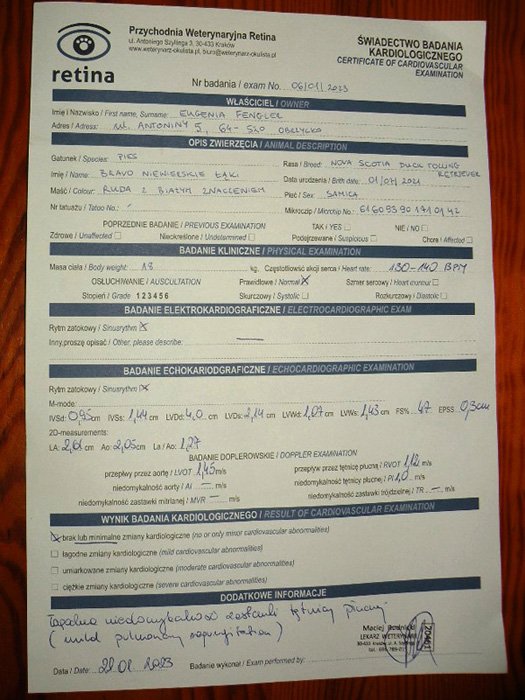 retina
Przychodnia Weterynaryjna Retina
ul. Antoniego Szylinga 3, 30-433 Kraków
www.weterynarz-okulista.pl, biuro@weterynarz-okulista.pl
ŚWIADECTWO BADANIA
KARDIOLOGICZNEGO
CERTIFICATE OF CARDIOVASCULAR
EXAMINATION
Nr badania / exam No. 06/01/2023
WŁAŚCICIEL / OWNER
Imię i Nazwisko / First name, Surname: EUGENIA FENGLER
Adres / Adress: ul. ANTONINY 5, 64-520 OBRZYCKO
OPIS ZWIERZĘCIA / ANIMAL DESCRIPTION
Gatunek / Species: PIES
Rasa / Breed: NOVA SCOTIA DUCK TOLLING RETRIEVER
Imię / Name: BRAVO NIEWIERSKIE ŁĄKI
Data urodzenia / Birth date: 01/07/2021
Maść / Colour: RUDA Z BIAŁYM ZNACZENIEM
Płeć / Sex: SAMICA
Nr tatuażu / Tatoo No.: -
Mikroczip / Microchip No.: 616093901710142
POPRZEDNIE BADANIE / PREVIOUS EXAMINATION TAK / YES NIE / NO
Zdrowe / Unaffected Nieokreślone / Undetermined Podejrzewane / Suspicious Chore / Affected
BADANIE KLINICZNE / PHYSICAL EXAMINATION
Masa ciała / Body weight: 18 kg. Częstotliwość akcji serca / Heart rate: 130-140 BPM
OSŁUCHIWANIE / AUSCULTATION Prawidłowe / Normal X Szmer sercowy / Heart murmur
Stopień / Grade 1 2 3 4 5 6 Skurczowy / Systolic Rozkurczowy / Diastolic
BADANIE ELEKTROKARDIOGRAFICZNE / ELECTROCARDIOGRAPHIC EXAM
Rytm zatokowy / Sinusrythm X
Inny, proszę opisać / Other, please describe: —
BADANIE ECHOKARIODGRAFICZNE / ECHOCARDIOGRAPHIC EXAMINATION
Rytm zatokowy / Sinusrythm X
M-mode:
IVSd: 0,95 cm IVSs: 1,44 cm LVDd: 4,0 cm LVDs: 2,14 cm LVWd: 1,07 cm LVWs: 1,43 cm FS% 47 EPSS: 0,3 cm
2D-measurements:
LA: 2,61 cm Ao: 2,05 cm La / Ao: 1,27
BADANIE DOPLEROWSKIE / DOPPLER EXAMINATION
przepływ przez aortę / LVOT 1,45 m/s przepływ przez tętnicę płucną / RVOT 1,12 m/s
niedomykalność aorty / AI — m/s niedomykalność tętnicy płucnej / PI 1,0 m/s
niedomykalność zastawki mitralnej / MVR — m/s niedomykalność zastawki trójdzielnej / TR — m/s
WYNIK BADANIA KARDIOLOGICZNEGO / RESULT OF CARDIOVASCULAR EXAMINATION
X brak lub minimalne zmiany kardiologiczne (no or only minor cardiovascular abnormalities)
łagodne zmiany kardiologiczne (mild cardiovascular abnormalities)
umiarkowane zmiany kardiologiczne (moderate cardiovascular abnormalities)
ciężkie zmiany kardiologiczne (severe cardiovascular abnormalities)
DODATKOWE INFORMACJE
niedomykalność zastawki tętnicy płucnej
(mild pulmonary regurgitation)
Maciej
LEKARZ WETERYNARII
Data / Date: 22.01.2023 Badanie wykonał / Exam performed by: